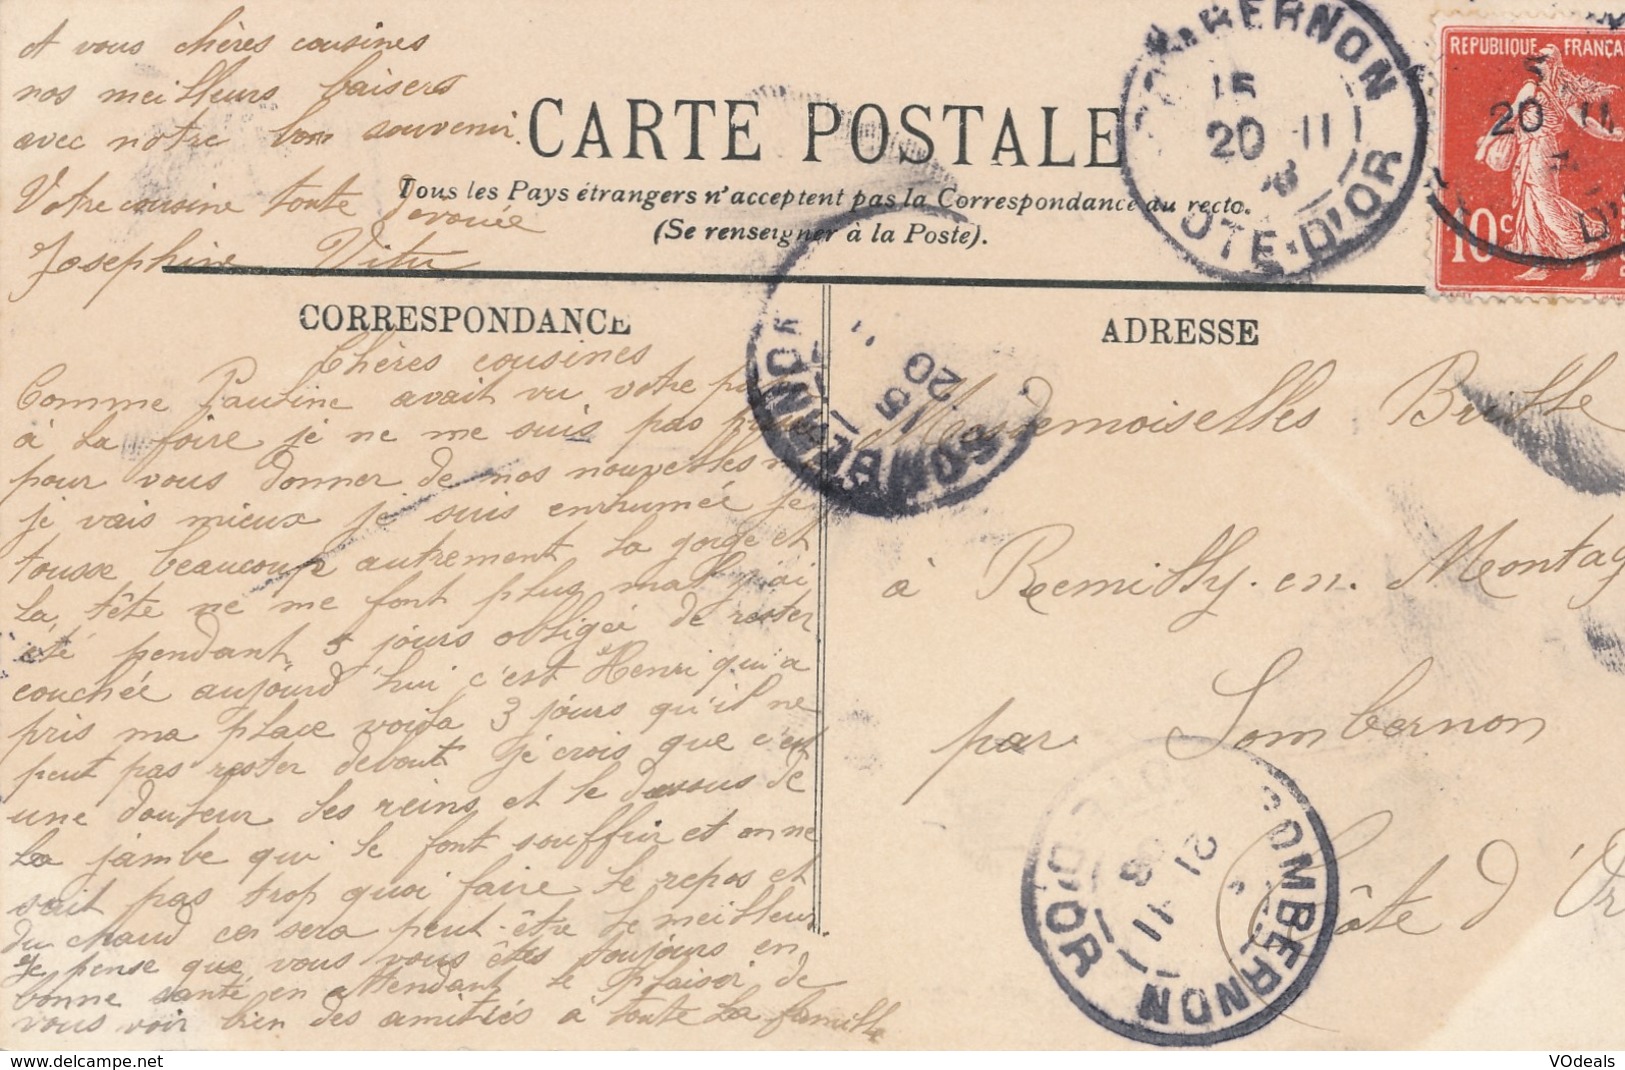 et vous chères cousines
nos meilleurs baisers
avec notre bon souvenir
Votre cousine toute dévouée
Joséphine Vitu
CARTE POSTALE
Tous les Pays étrangers n'acceptent pas la Correspondance au recto.
(Se renseigner à la Poste).
SOMBERNON
15
20 11
COTE-D'OR
REPUBLIQUE FRANÇA
20 11
10c
CORRESPONDANCE
Chères cousines
Comme Pauline avait vu votre
à la foire je ne me suis pas
pour vous donner de nos nouvelles
je vais mieux je suis enrhumée je
tousse beaucoup autrement la gorge et
la tête ne me font plus mal j'ai
été pendant 5 jours obligée de rester
couchée aujourd'hui c'est Henri qui a
pris ma place voila 3 jours qu'il ne
peut pas rester debout je crois que c'est
une douleur les reins et le dessous de
la jambe qui le font souffrir et on ne
sait pas trop quoi faire le repos et
du chaud ce sera peut-être le meilleur
Je pense que vous vous êtes toujours en
bonne santé en attendant le plaisir de
vous voir bien des amitiés à toute la famille
SOMBERNON
15
20
ADRESSE
Mesdemoiselles Brulle
à Remilly-en-Montag
par Sombernon
Côte d'Or
SOMBERNON
21 11
08
D'OR
© delcampe.net
VOdeals